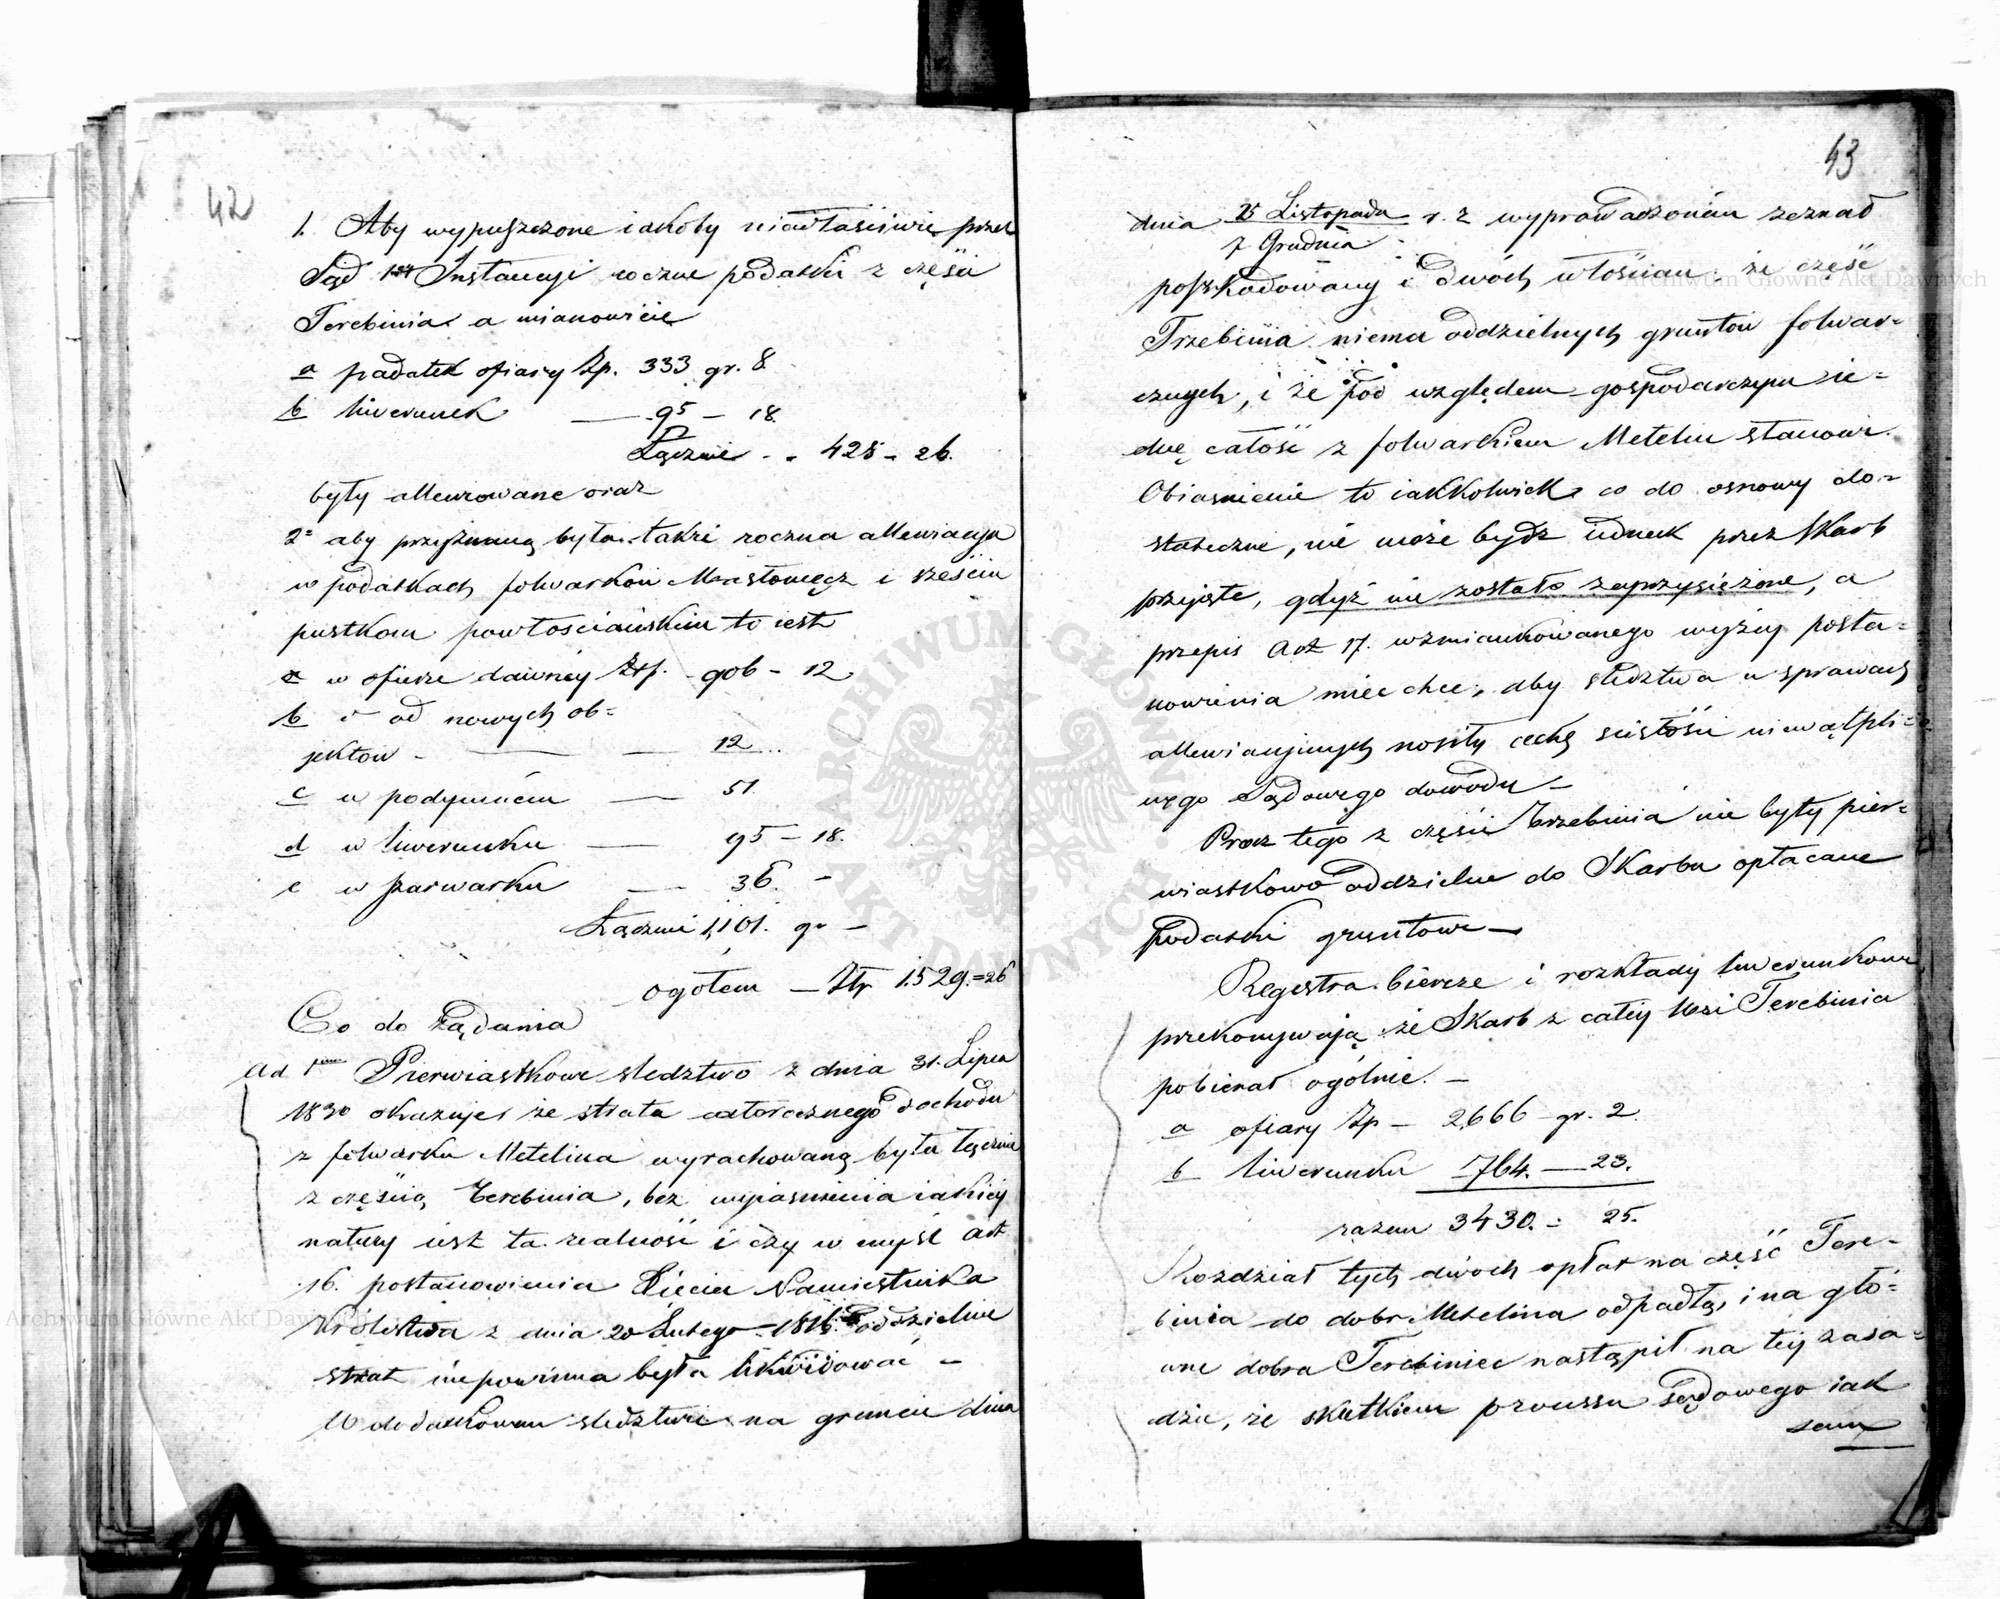 42
1. Aby wypuszczone iakoby niewłaściwie przez
Sąd 1szej Instancyi roczne podatki z części
Terebinia a mianowicie
a podatek ofiary Zp. 333 gr. 8
b liwerunek — 95 — 18.
Łącznie - - 428 - 26.
były allewiowane oraz
2e aby przyznaną była także roczna allewiacyia
w podatkach folwarków Miastomęcz i sześciu
pustkom powłościańskim to iest
a w ofierze dawnéy Ztp. 906 - 12
b i od nowych ob=
jektow - — — 12...
c w podymném — 51.
d w liwerunku — 95 - 18.
e w szarwarku — 36. -
Łącznie 1,101. gr —
ogółem — Ztp 1529.=26
Co do żądania
ad 1mum Pierwiastkowe sledztwo z dnia 31. Lipca
1830 okazuje, że strata całorocznego dochodu
z folwarku Metelina wyrachowaną była łącznie
z częścią Terebinia, bez wyjaśnienia iakiéj
natury iest ta realność i czy w myśl art
16. postanowienia Xięcia Namiestnika
Królestwa z dnia 20 Lutego 1816. oddzielnie
strat niepowinna była likwidować —
W dodatkowem śledztwie na gruncie dnia
43
dnia 25 Listopada r. z wyprowadzoném zeznał
7 Grudnia
poszkodowany i dwóch włościan, że część
Trzebinia niema oddzielnych gruntów folwar=
cznych, i że pod względem gospodarczym ie=
dnę całość z folwarkiem Metelin stanowi.
Obiaśnienie to iakkolwiek co do osnowy do=
stateczne, nie może bydź iednak przez Skarb
przyjęte, gdyż nie zostało zaprzysiężone, a
przepis Art 17. wzmiankowanego wyżéy posta=
nowienia mieć chce, aby śledztwa w sprawach
allewiacyjnych nosiły cechę ścisłości niewątpli=
wego Sądowego dowodu —
Procz tego z części Trzebinia nie były pier=
wiastkowo oddzielne do Skarbu opłacane
podatki gruntowe —
Regestra biercze i rozkłady liwerunkowe
przekonywają że Skarb z całéy Wsi Terebinia
pobierał ogólnie. —
a ofiary Zp — 2,666 gr. 2.
b liwerunku 764. — 23.
razem 3430. = 25.
Rozdział tych dwóch opłat na część Tere=
binia do dobr Metelina odpadłą, i na głó=
wne dobra Terebiniec nastąpił na téj zasa=
dzie, że skutkiem processu sądowego iak
sam